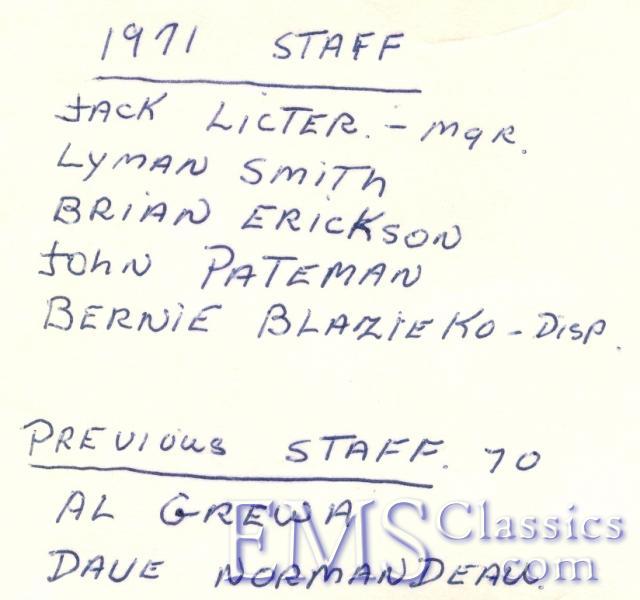 1971 STAFF
JACK LICTER. - MGR.
LYMAN SMITH
BRIAN ERICKSON
JOHN PATEMAN
BERNIE BLAZIEKO - DISP.
PREVIOUS STAFF. 70
AL GREWA
DAVE NORMANDEAU.
EMSClassics
.com